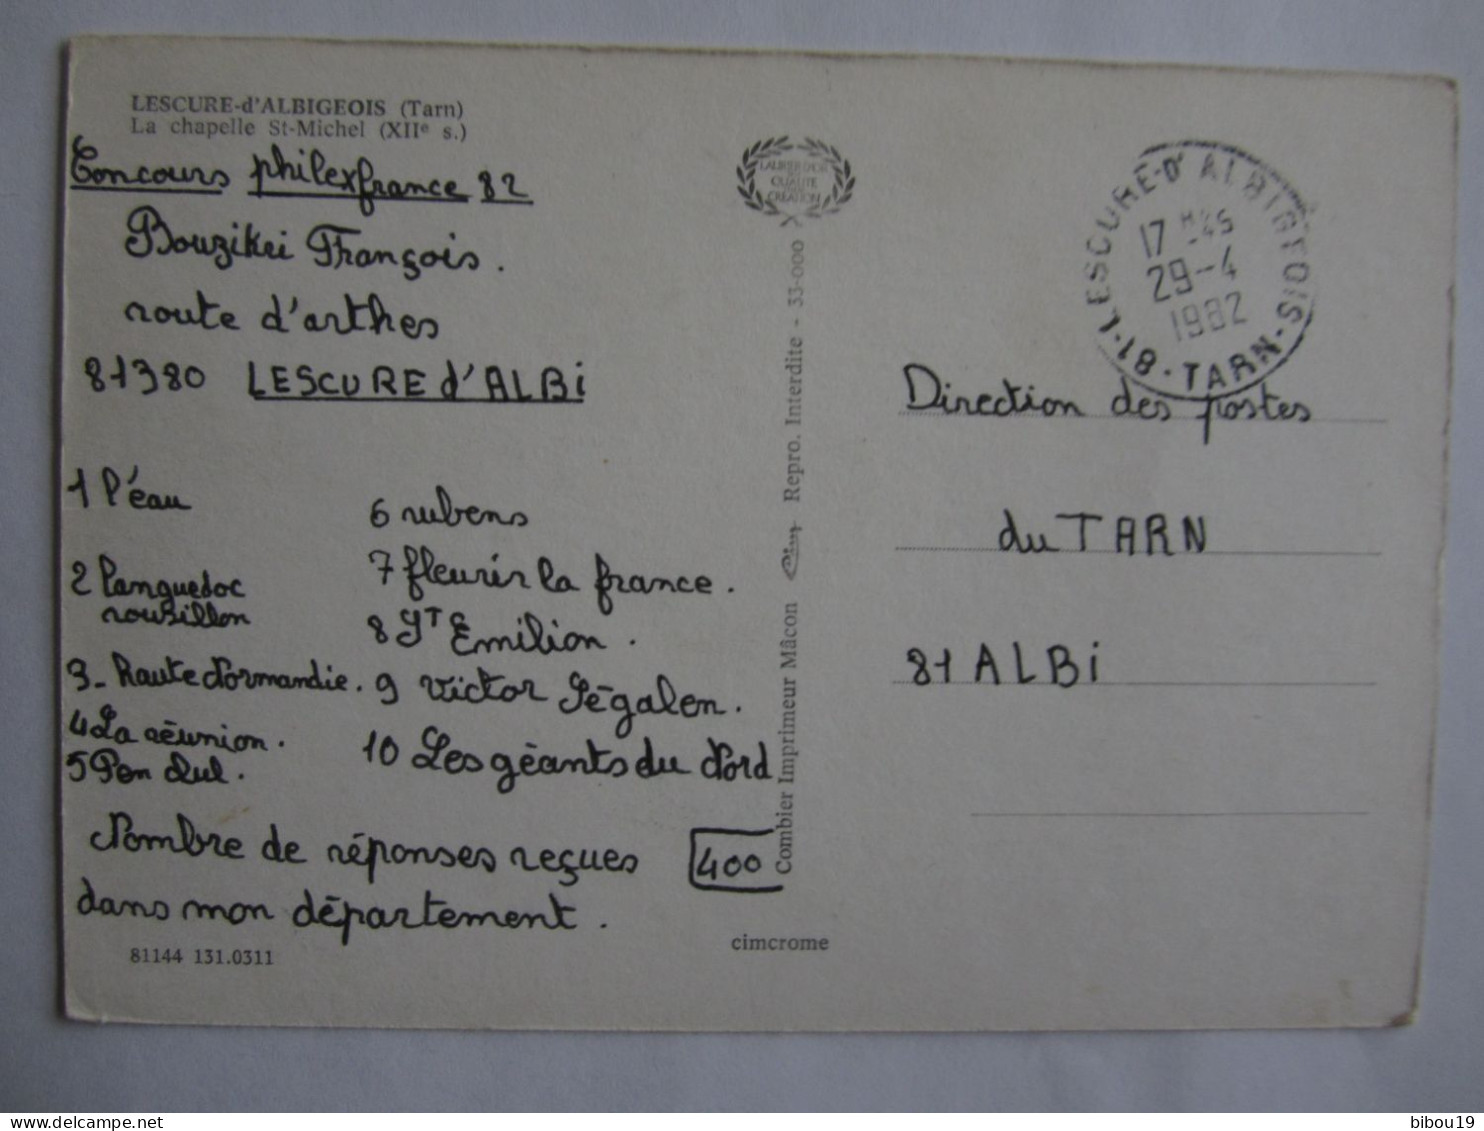 LESCURE-d'ALBIGEOIS (Tarn)
La chapelle St-Michel (XIIe s.)
Concours philexfrance 82
Bouzikei François.
route d'arthes
81380 LESCURE d'ALBi
1 l'éau
2 Languedoc
roussillon
3_ haute Normandie.
4 La réunion.
5 Pen dul.
6 rubens
7 fleurir la france.
8 ST Emilion.
9 Victor Ségalen.
10 Les géants du Nord
Nombre de réponses reçues 400
dans mon département.
81144 131.0311
cimcrome
LAURIER D'OR
QUALITÉ
CRÉATION
Combier Imprimeur Mâcon Cim Repro. Interdite - 33-000
LESCURE-D'ALBIGEOIS
17
29-4
1982
·81·TARN·
Direction des postes
du TARN
81 ALBi
bibou19